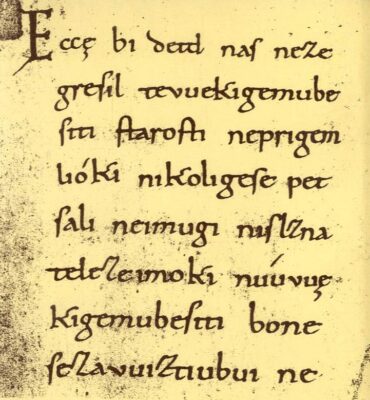 Eccę bi detd naſ neze
greſil tevuekigemube
ſiti ſtaroſti neprigem
lióki nikoligeſe pet
ſali neimugi niſlzna
telezeimoki núúvuę
kigemubeſiti bone
ſezavuiztiubui ne